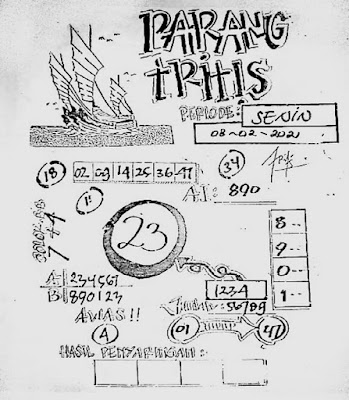 PARANG
TRITIS
PERIODE: SENIN
08-02-2021
18 02 09 14 25 36 47 34
11
A.I: 890
COLOK
7 4 4
23
8--
9--
0--
1--
1234
56789
A 234567
B 890123
AWAS!!
A
01 47
HASIL PENYARINGAN: